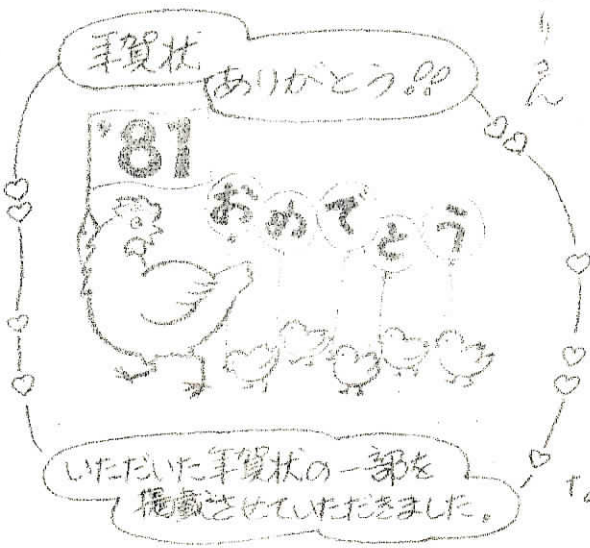 年賀状
ありがとう!!
'81
おめでとう
いただいた年賀状の一部を
掲載させていただきました。